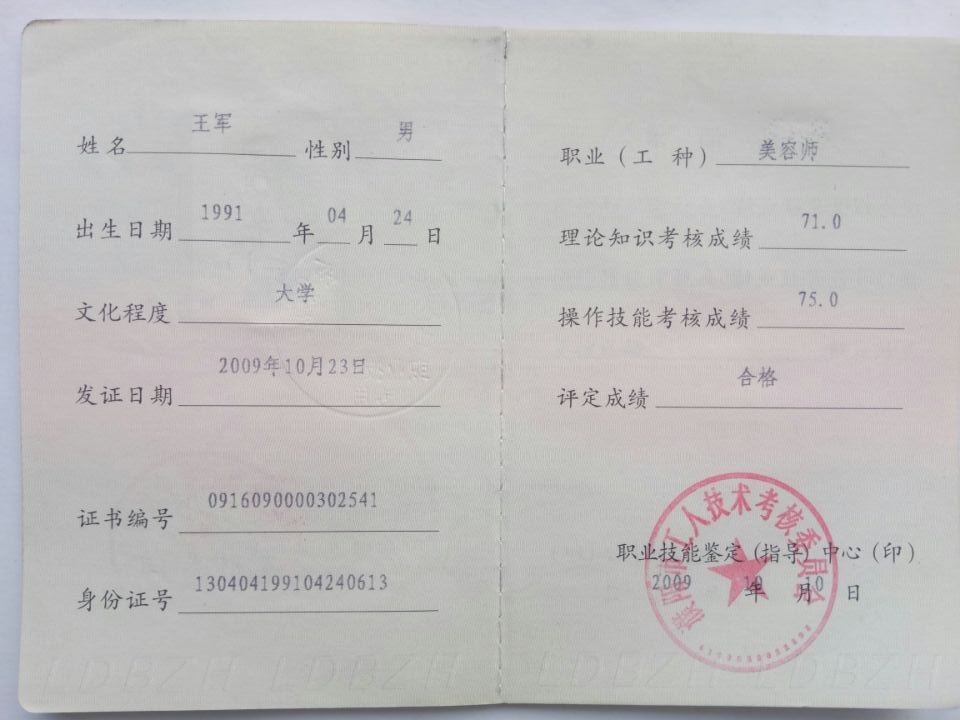 姓名 王军 性别 男
出生日期 1991 年 04 月 24 日
文化程度 大学
发证日期 2009年10月23日
证书编号 0916090000302541
身份证号 130404199104240613
职业（工 种） 美容师
理论知识考核成绩 71.0
操作技能考核成绩 75.0
评定成绩 合格
濮阳市工人技术考核委员会
职业技能鉴定（指导）中心（印）
2009 年 10 月 10 日
LDBZH LDBZH LDBZH LDBZH